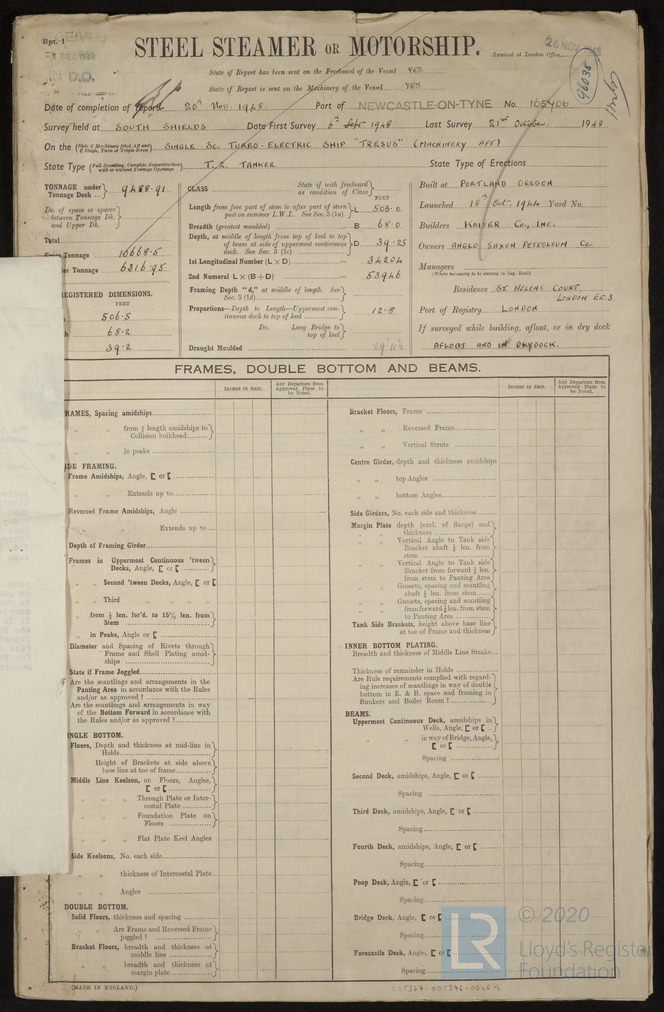 Rpt. 1
STEEL STEAMER OR MOTORSHIP.
26 NOV 1948
Received at London Office
State if Report has been sent on the Freeboard of the Vessel YES
State if Report is sent on the Machinery of the Vessel YES
96035
Date of completion of report 20th Nov. 1948. Port of NEWCASTLE-ON-TYNE No. 105406
Survey held at SOUTH SHIELDS Date First Survey 6th Sept 1948 Last Survey 21st October. 1948
On the (State if Machinery fitted Aft and if Single, Twin or Triple Screw) SINGLE SC. TURBO-ELECTRIC SHIP "TRESUS" (MACHINERY AFT)
State Type (Full Scantling, Complete Superstructure with or without Tonnage Openings) T.2. TANKER State Type of Erections
TONNAGE under Tonnage Deck ... 9488.91
Do. of space or spaces between Tonnage Dk. and Upper Dk.
Total
Gross Tonnage 10668.5
Tonnage 6316.95
REGISTERED DIMENSIONS.
FEET
506.5
68.2
39.2
CLASS State if with freeboard as condition of Class
FEET
Length from fore part of stem to after part of stern post on summer L.W.L. See Sec. 3 (1a) L 503.0
Breadth (greatest moulded) B 68.0
Depth, at middle of length from top of keel to top of beam at side of uppermost continuous deck. See Sec. 3 (1c) D 39.25
1st Longitudinal Number (L × D) = 34204
2nd Numeral L × (B + D) = 53946
Framing Depth "d," at middle of length. See Sec. 3 (1d)
Proportions—Depth to Length—Uppermost continuous deck to top of keel 12.8
Do. Long Bridge to top of keel
Draught Moulded
Built at PORTLAND OREGON
Launched 18th Oct. 1944 Yard No.
Builders KAISER CO., INC.
Owners ANGLO SAXON PETROLEUM CO.
Managers
(Where necessary to be entered in Reg. Book)
Residence ST. HELENS COURT
LONDON EC.3.
Port of Registry LONDON
If surveyed while building, afloat, or in dry dock
AFLOAT AND IN DRYDOCK.
FRAMES, DOUBLE BOTTOM AND BEAMS.
INCHES IN SHIP. Any Departure from Approved Plans to be Noted. INCHES IN SHIP. Any Departure from Approved Plans to be Noted.
RAMES, Spacing amidships
" " from ⅗ length amidships to Collision bulkhead
" " in peaks
IDE FRAMING.
Frame Amidships, Angle, [ or [
" " Extends up to
Reversed Frame Amidships, Angle
" " Extends up to
Depth of Framing Girder
Frames in Uppermost Continuous 'tween Decks, Angle, [ or [
" Second 'tween Decks, Angle, [ or [
" Third " "
" from ⅗ len. for'd. to 15% len. from Stem
" in Peaks, Angle or [
Diameter and Spacing of Rivets through Frame and Shell Plating amidships
State if Frame Joggled
Are the scantlings and arrangements in the Panting Area in accordance with the Rules and/or as approved ?
Are the scantlings and arrangements in way of the Bottom Forward in accordance with the Rules and/or as approved ?
INGLE BOTTOM.
Floors, Depth and thickness at mid-line in Holds
Height of Brackets at side above base line at toe of frame
Middle Line Keelson, on Floors, Angles, [ or [
" " Through Plate or Intercostal Plate
" " Foundation Plate on Floors
" " Flat Plate Keel Angles
Side Keelsons, No. each side
" " thickness of Intercostal Plate
" " Angles
DOUBLE BOTTOM.
Solid Floors, thickness and spacing
" " Are Frame and Reversed Frame joggled ?
Bracket Floors, breadth and thickness at middle line
" " breadth and thickness at margin plate
Bracket Floors, Frame
" " Reversed Frame
" " Vertical Struts
Centre Girder, depth and thickness amidships
" " top Angles
" " bottom Angles
Side Girders, No. each side and thickness
Margin Plate depth (excl. of flange) and thickness
" " Vertical Angle to Tank side Bracket abaft ¼ len. from stem
" " Vertical Angle to Tank side Bracket from forward ¼ len. from stem to Panting Area
" " Gussets, spacing and scantling abaft ¼ len. from stem
" " Gussets, spacing and scantling from forward ¼ len. from stem to Panting Area
Tank Side Brackets, height above base line at toe of Frame and thickness
INNER BOTTOM PLATING.
Breadth and thickness of Middle Line Strake
Thickness of remainder in Holds
Are Rule requirements complied with regarding increases of scantlings in way of double bottom in E. & B. space and framing in Bunkers and Boiler Room ?
BEAMS.
Uppermost Continuous Deck, amidships in Wells, Angle, [ or [
" " in way of Bridge, Angle, [ or [
Spacing
Second Deck, amidships, Angle, [ or [
Spacing
Third Deck, amidships, Angle, [ or [
Spacing
Fourth Deck, amidships, Angle, [ or [
Spacing
Poop Deck, Angle, [ or [
Spacing
Bridge Deck, Angle, [ or [
Spacing
Forecastle Deck, Angle, [ or [
Spacing
(MADE IN ENGLAND.)
005367-005376-0046½
LR
© 2020
Lloyd's Register
Foundation